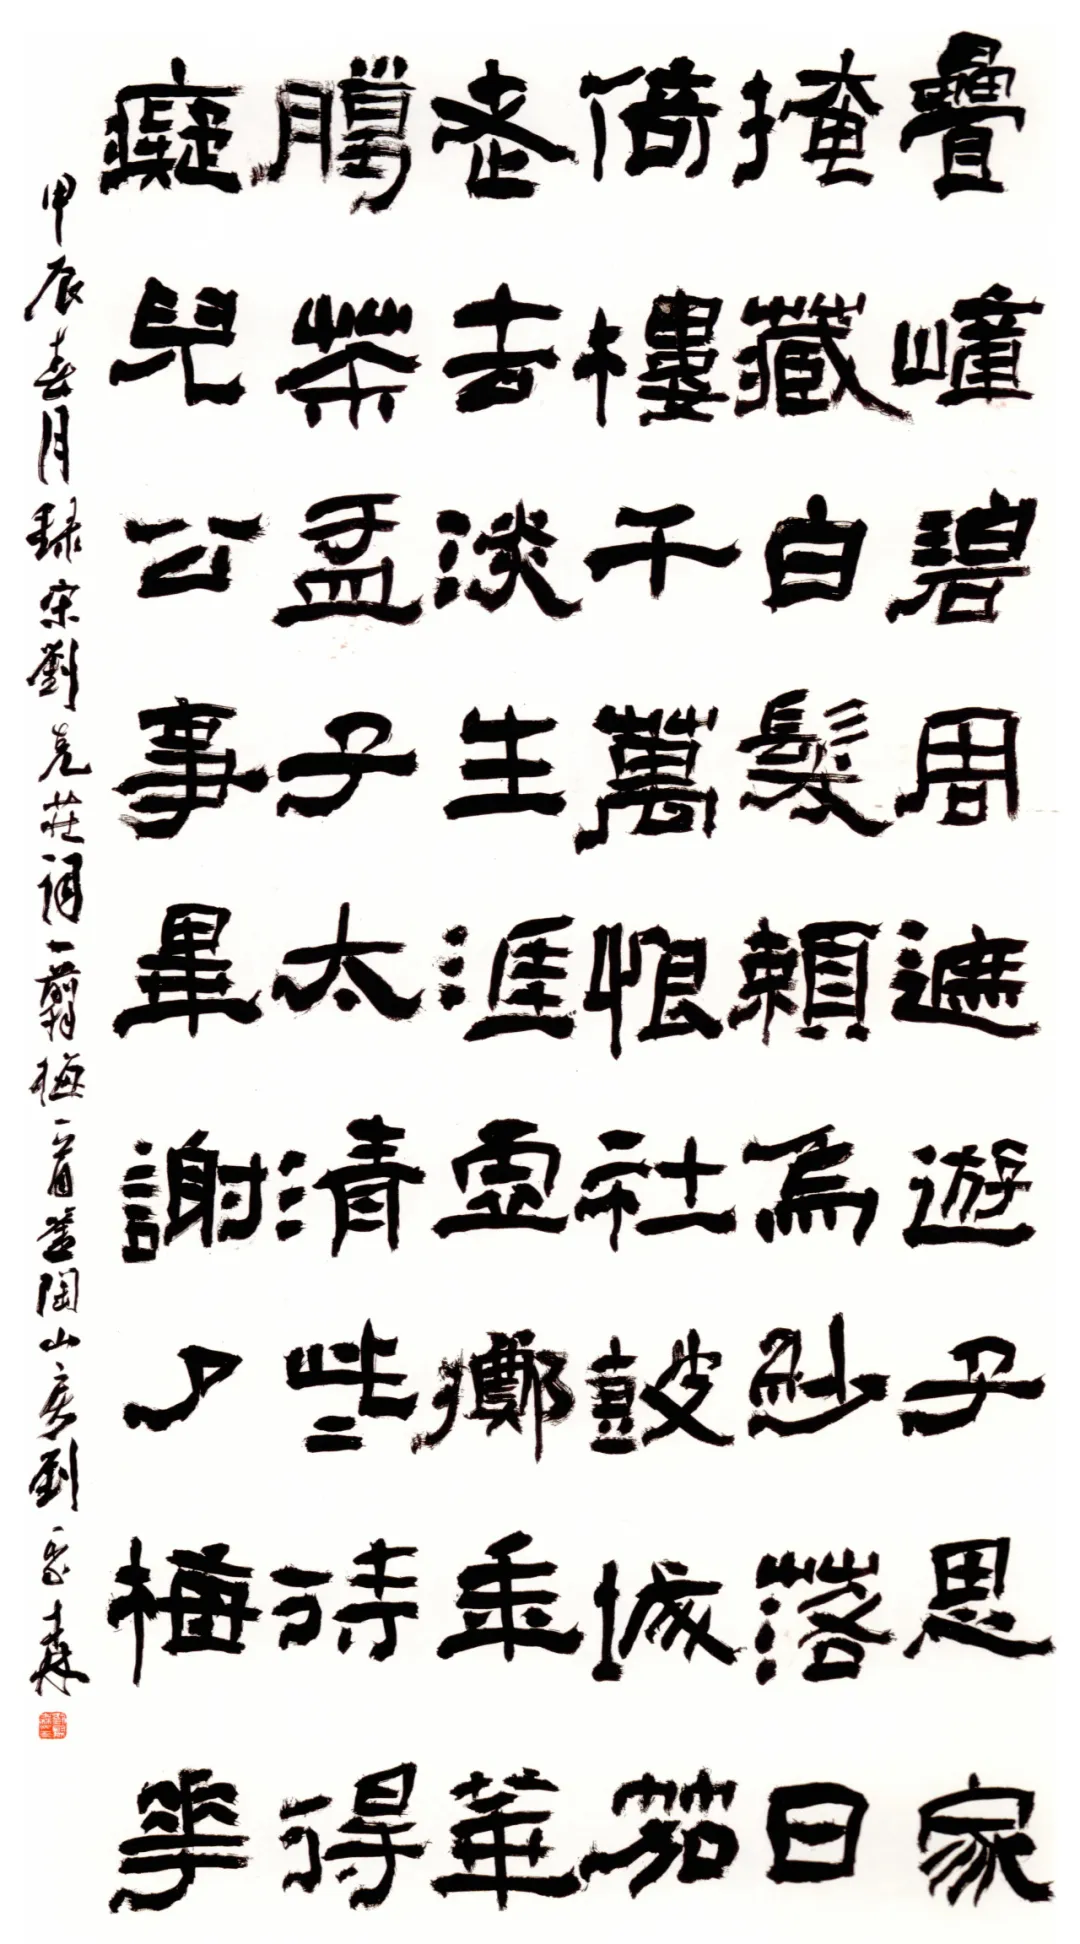 疊嶂碧周遮遊子思家
掩藏白髮賴烏紗落日
倚樓千萬恨社鼓城笳
老去淡生涯虛擲年華
臈茶盂子太清些待得
癡兒公事畢謝了梅花
甲辰春月録宋劉克莊詞一翦梅一首陶山房劉森